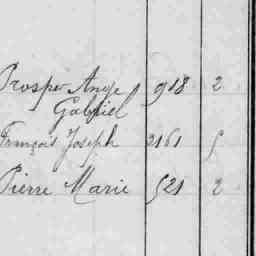 Prosper Ange 918 2
Gabriel
François Joseph 2161 5
Pierre Marie 521 2